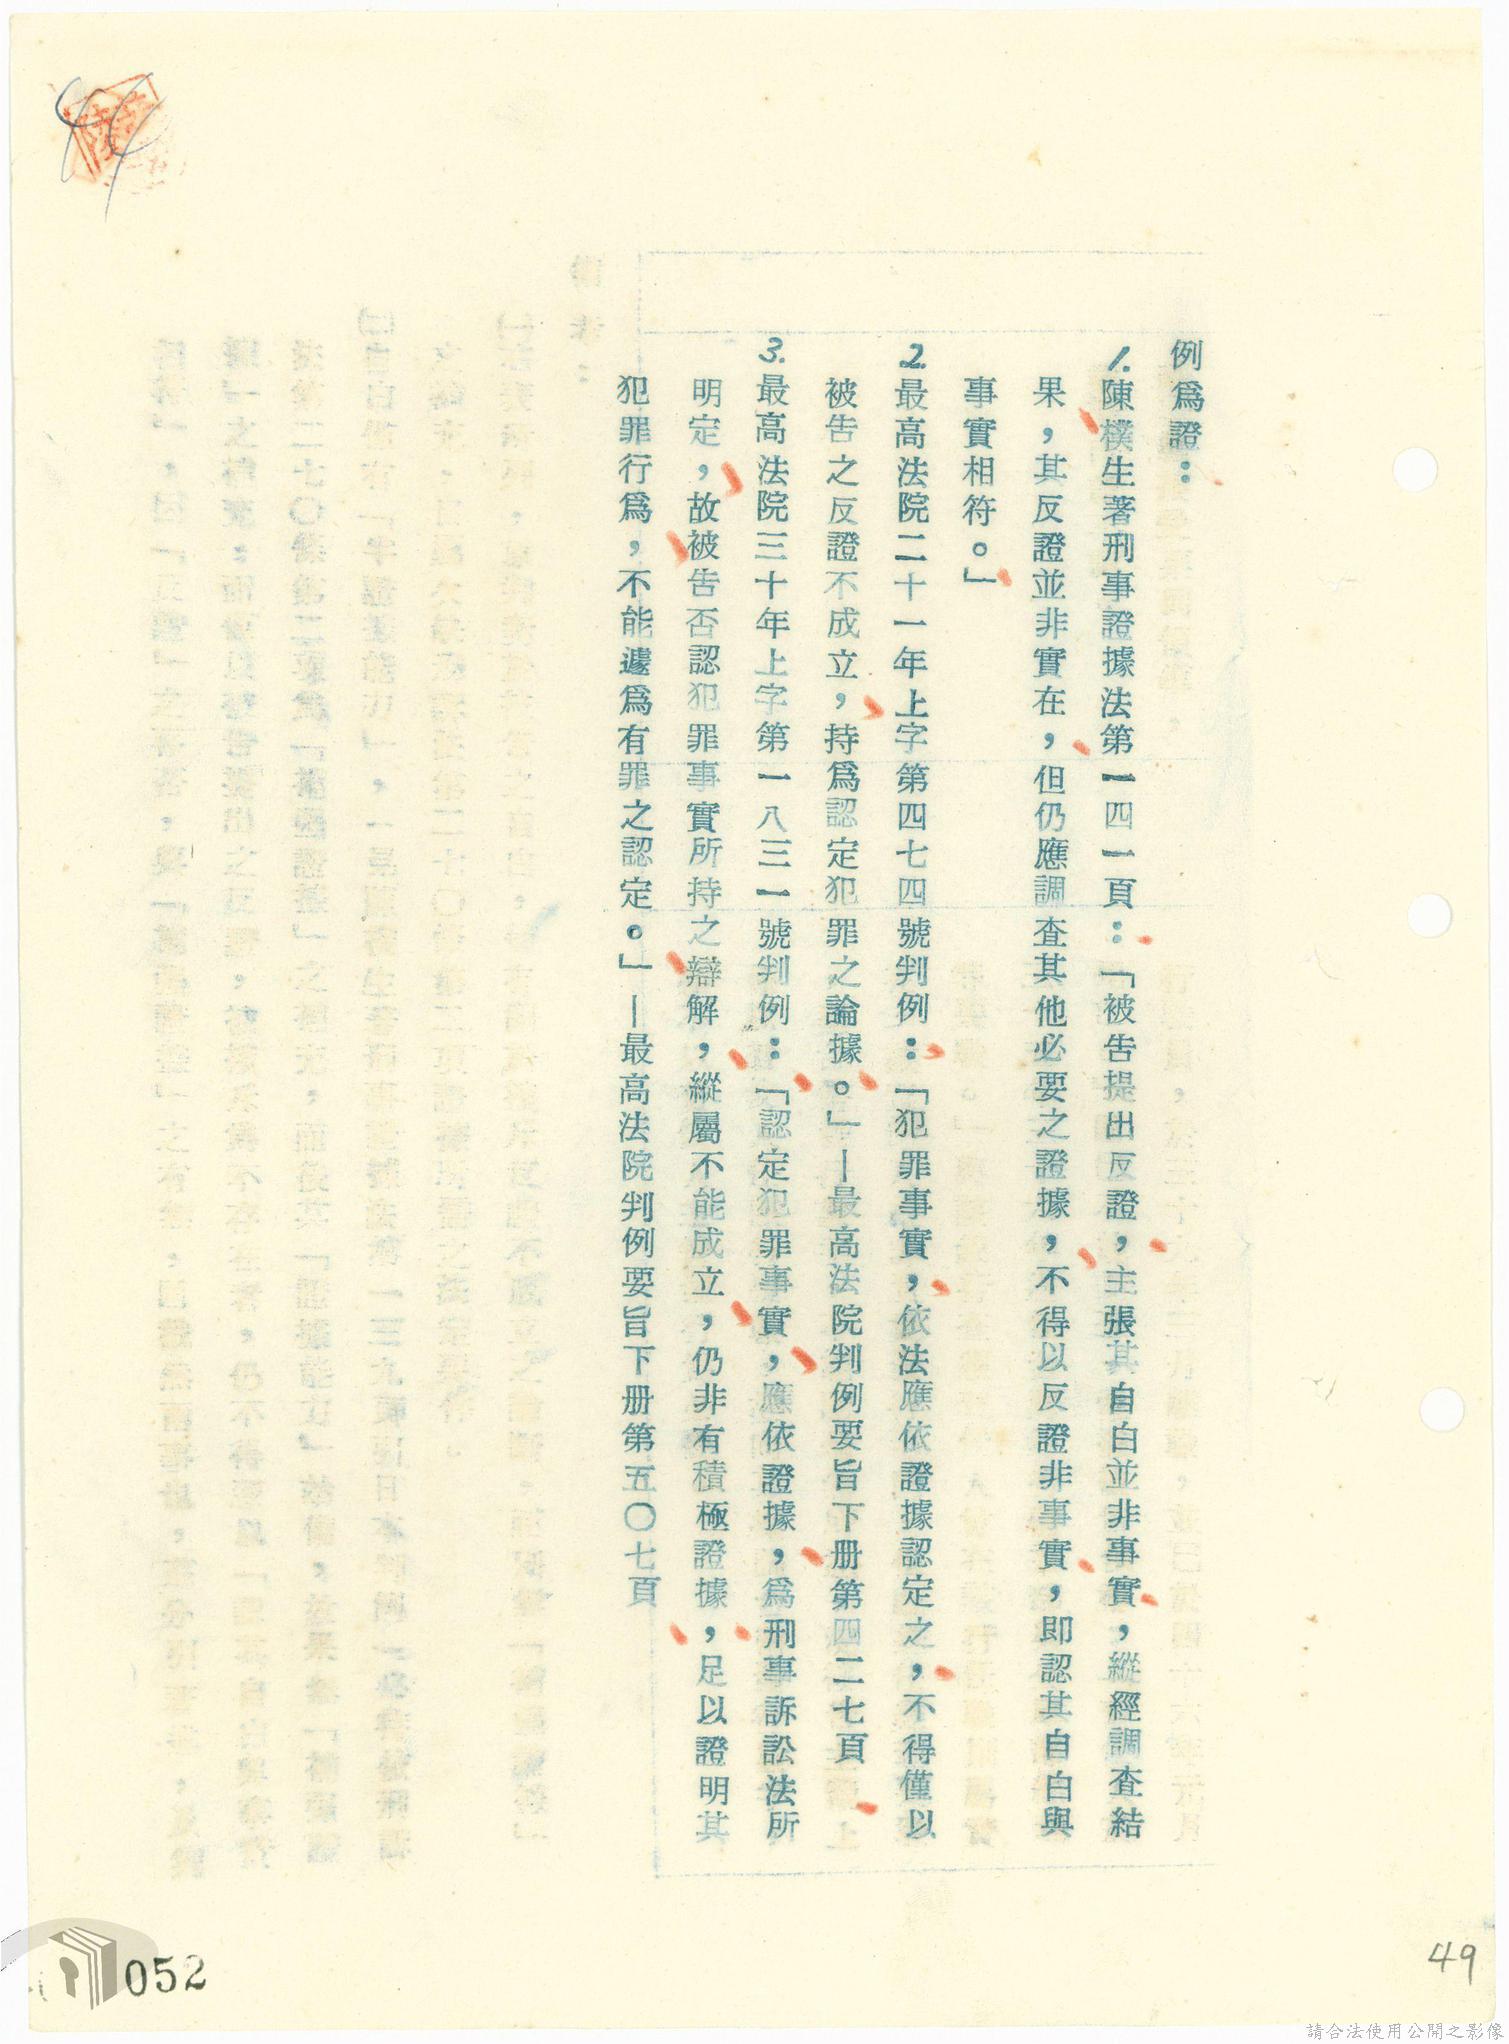 例爲證：
1.陳樸生著刑事證據法第一四一頁：「被告提出反證，主張其自白並非事實，縱經調查結
果，其反證並非實在，但仍應調查其他必要之證據，不得以反證非事實，即認其自白與
事實相符。」
2.最高法院二十一年上字第四七四號判例：「犯罪事實，依法應依證據認定之，不得僅以
被告之反證不成立，持爲認定犯罪之論據。」—最高法院判例要旨下册第四二七頁
3.最高法院三十年上字第一八三一號判例：「認定犯罪事實，應依證據，爲刑事訴訟法所
明定，故被告否認犯罪事實所持之辯解，縱屬不能成立，仍非有積極證據，足以證明其
犯罪行爲，不能遽爲有罪之認定。」—最高法院判例要旨下册第五〇七頁
052
49
請合法使用公開之影像